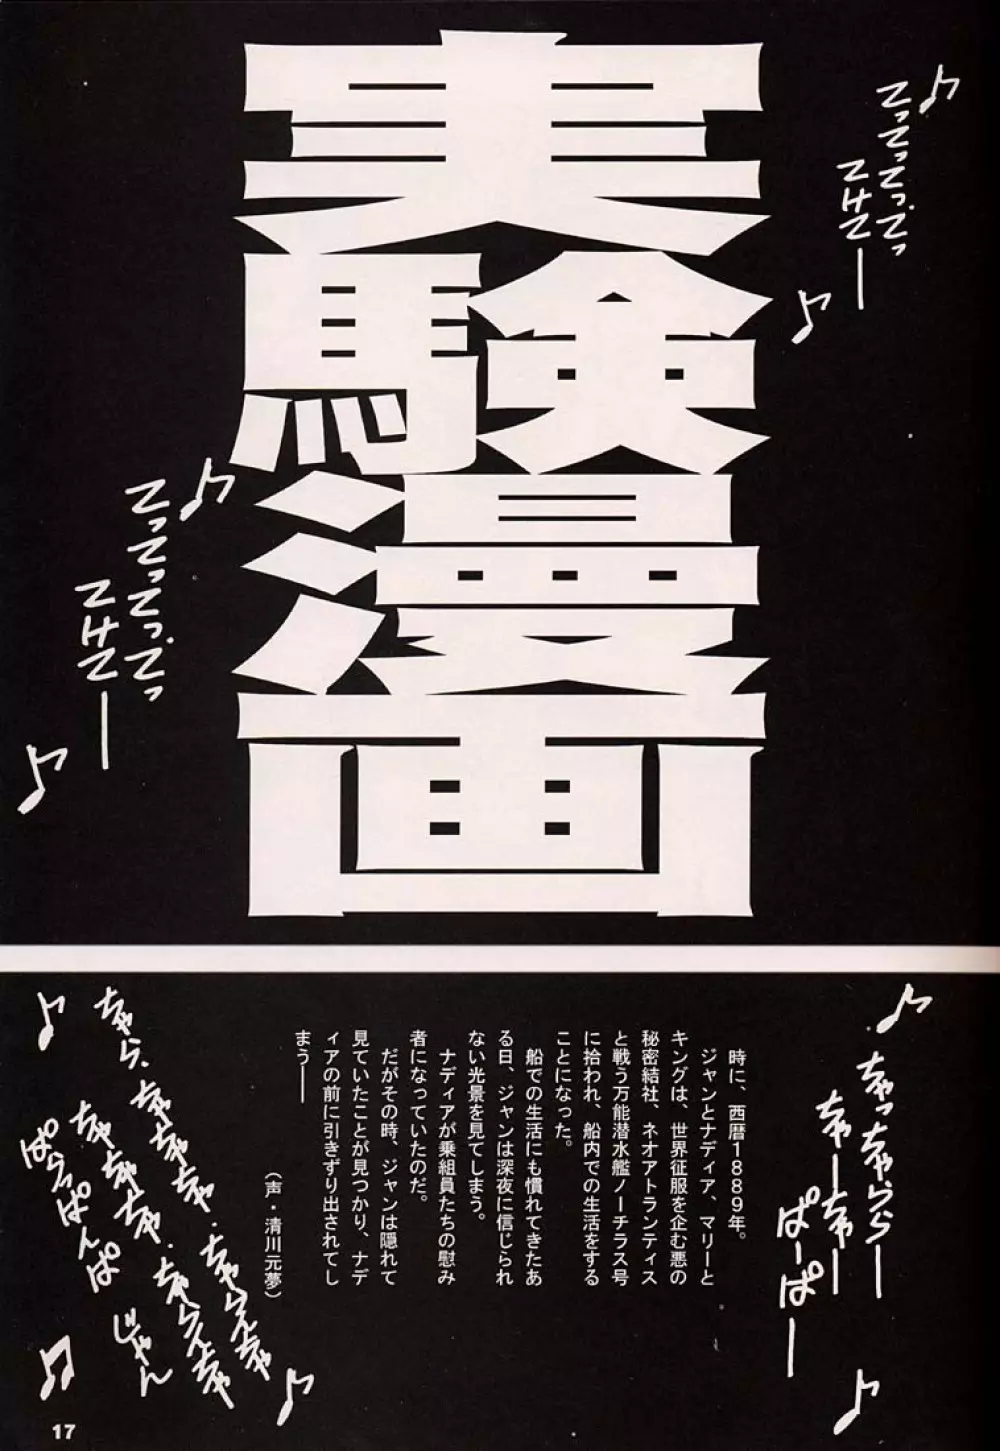 実
験
漫
画
てってってってっ
てけてー
てってってってっ
てけてー
時に、西暦1889年。
ジャンとナディア、マリーと
キングは、世界征服を企む悪の
秘密結社、ネオアトランティス
と戦う万能潜水艦ノーチラス号
に拾われ、船内での生活をする
ことになった。
船での生活にも慣れてきたあ
る日、ジャンは深夜に信じられ
ない光景を見てしまう。
ナディアが乗組員たちの慰み
者になっていたのだ。
だがその時、ジャンは隠れて
見ていたことが見つかり、ナデ
ィアの前に引きずり出されてし
まう――
(声・清川元夢)
ちゃっちゃららー
ちゃーちゃー
ぱーぱー
ちゃらえちゃ
ちゃらえちゃ
じゃん
ちゃら、ちゃちゃちゃ・
ちゃちゃちゃ・
ぱらっぱんぱ
17